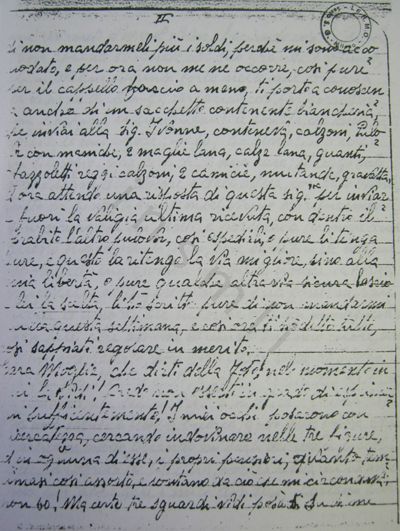 II
di non mandarmeli più i soldi, perchè mi sono acco
modato, e per ora non me ne occorre, così pure
per il cappello faccio a meno, ti porto a conoscen
za anche di un sacchetto contenente biancheria,
che inviai alla sig. Ivonne, conteneva, calzoni, pulo
con maniche, 2 maglie lana, calze lana, guanti,
fazzoletti reggi calzoni, 2 camicie, mutande, gravatta,
ora attendo una risposta di questa sig.ra per inviar
fuori la valigia ultima ricevuta, con dentro il
l'altro pulover, così spedili, o pure li tenga
pure, e questo la ritengo la via migliore, sino alla
mia libertà, o pure qualche altra via sicura lascio
lei la scelta, ti ho scritto pure di non mandarmi
questa settimana, e con ora ti ho detto tutto,
così sappiati regolare in merito.
Cara Moglie, che dirti della Foto! nel momento in
credo non esserti in grado di esprimer
sufficientemente! I miei occhi posarono con
cercando indovinare nelle tre figure,
d'ognuna d'esse, i propri pensieri, quanto, tem
rimasi così assorto, e lontano da ciò che mi circondava
non so! Ma certe tre sguardi vidi posati su di me